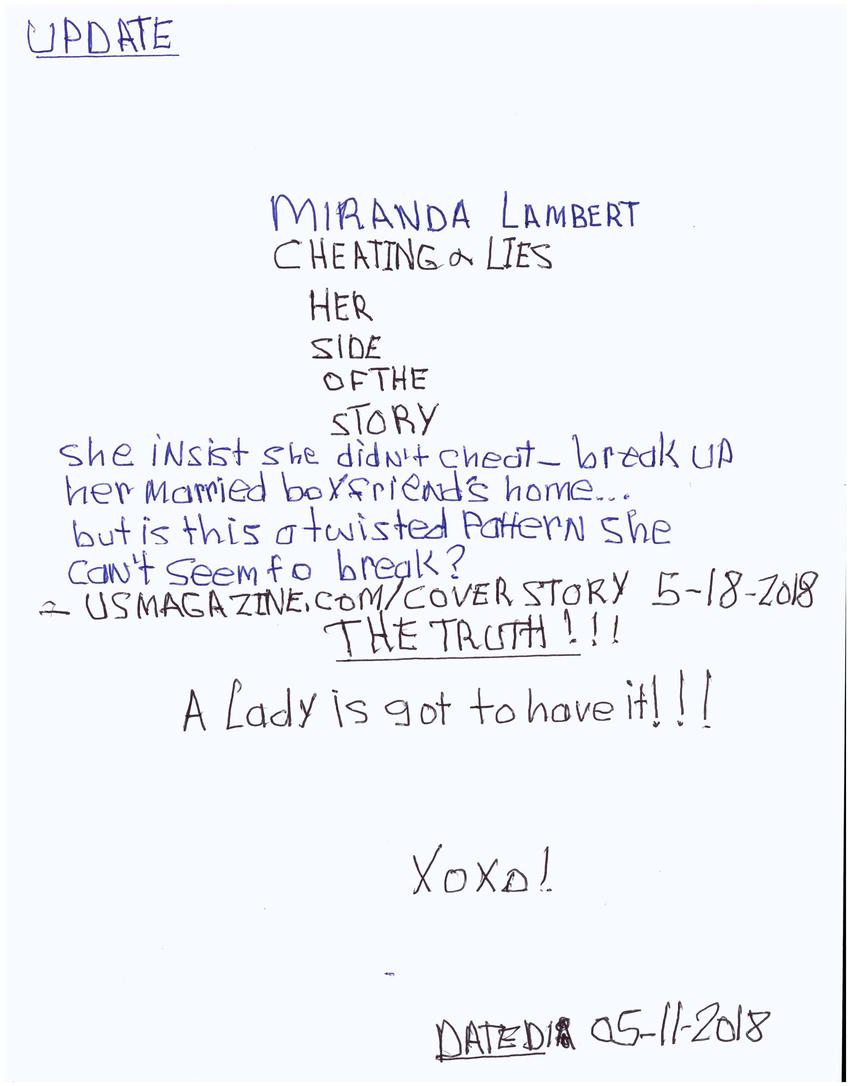 UPDATE
MIRANDA LAMBERT
CHEATING & LIES
HER
SIDE
OF THE
STORY
she iNsist she didN't cheat - break UP
her married boyfrieNd's home...
but is this a twisted PatterN she
can't seem to break?
- USMAGAZINE.COM/COVER STORY 5-18-2018
THE TRUTH!!!
A Lady is got to have it!!!
XOXO!
DATED 05-11-2018